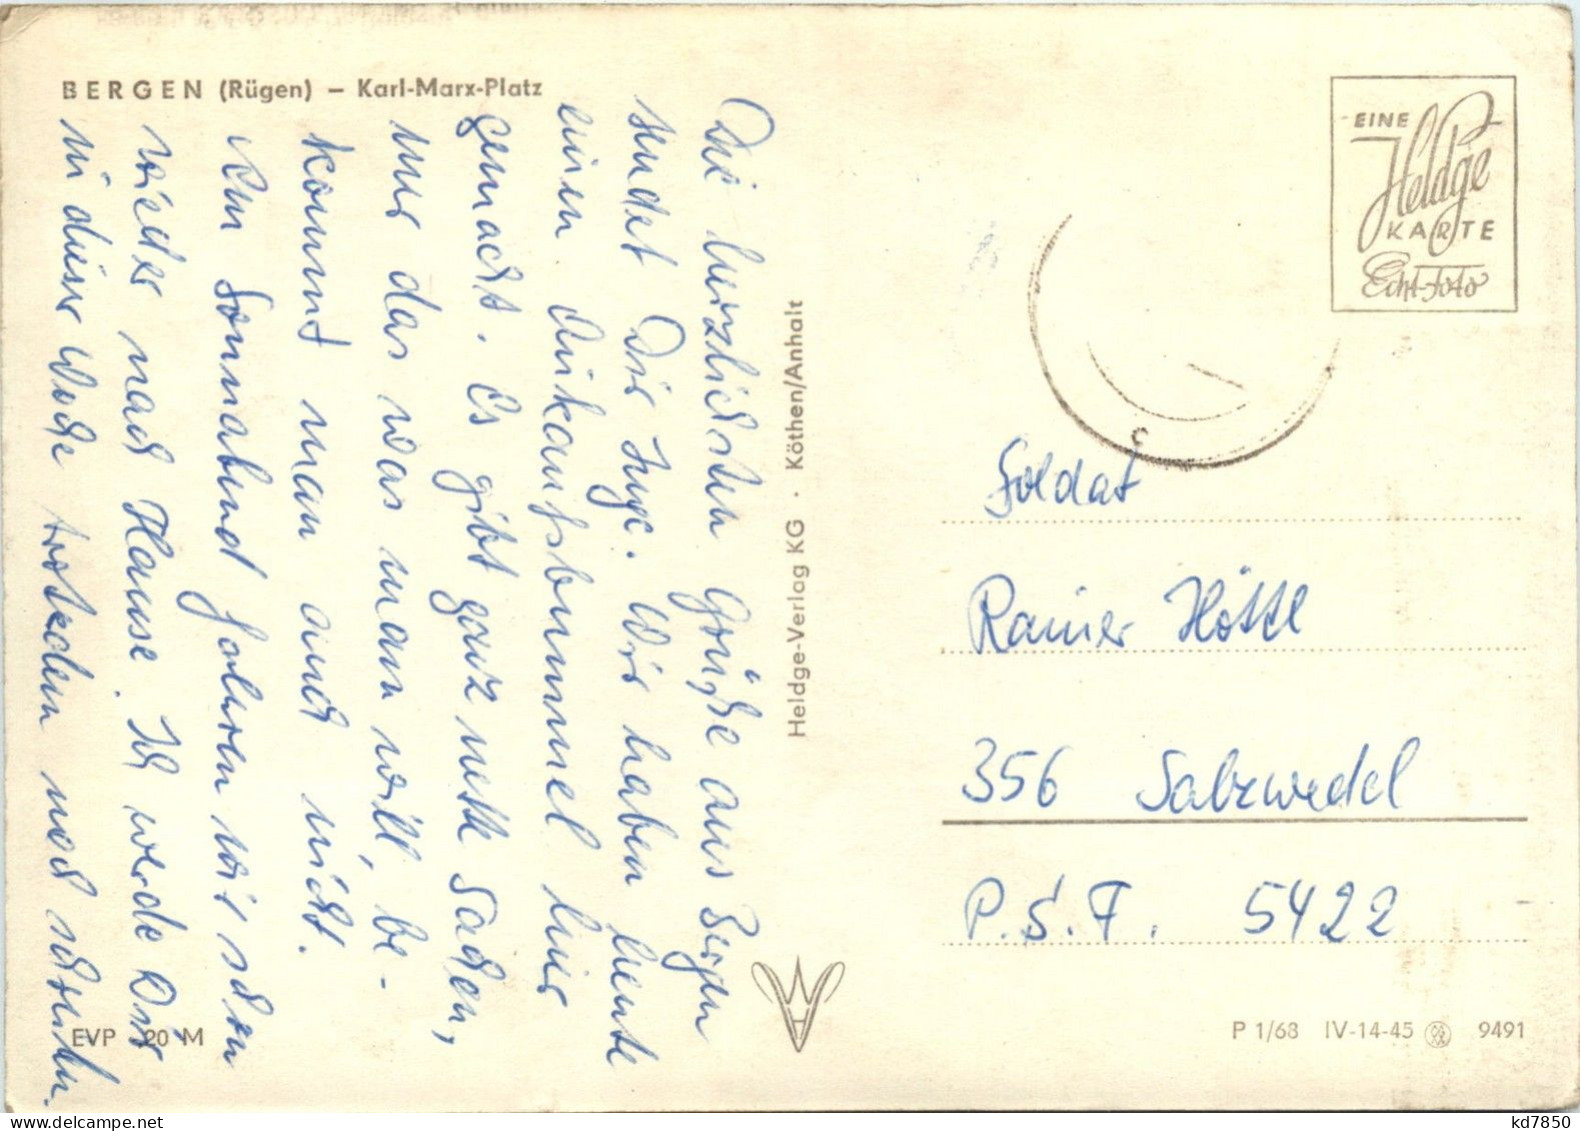 BERGEN (Rügen) – Karl-Marx-Platz
Die herzlichsten Grüße aus Bergen
sendet Dir Inge. Wir haben heute
einen Einkaufsbummel hier
gemacht. Es gibt ganz nette Sachen,
nur das was man will, be-
kommt man auch nicht.
Am Sonnabend fahren wir schon
wieder nach Hause. Ich werde Dir
in dieser Woche trotzdem noch schreiben.
EVP 20 M
Heldge-Verlag KG · Köthen/Anhalt
EINE
Heldge
KARTE
Echt-Foto
Soldat
Rainer
356 Salzwedel
P.S.F. 5422
P 1/68 IV-14-45 9491
kd7850
www.delcampe.net